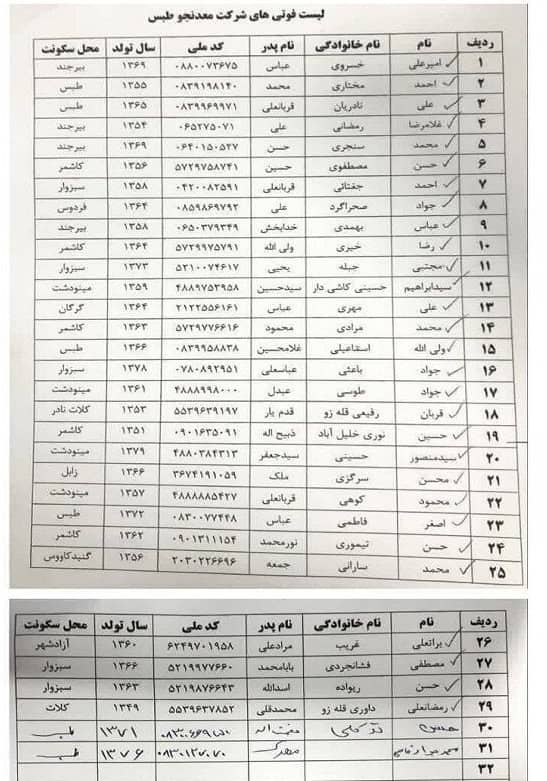 لیست فوتی های شرکت معدنجو طبس
ردیف نام نام خانوادگی نام پدر کد ملی سال تولد محل سکونت
۱ امیرعلی خسروی عباس ۰۸۸۰۰۷۳۶۷۵ ۱۳۶۹ بیرجند
۲ احمد مختاری محمد ۰۸۳۹۱۹۸۱۴۰ ۱۳۵۵ طبس
۳ علی نادریان قربانعلی ۰۸۳۹۹۶۹۹۷۱ ۱۳۶۵ طبس
۴ غلامرضا رمضانی علی ۰۶۵۲۷۵۰۷۱ ۱۳۵۴ بیرجند
۵ محمد سنجری حسن ۰۶۴۰۱۵۰۵۲۷ ۱۳۶۹ بیرجند
۶ حسن مصطفوی حسین ۵۷۲۹۷۵۸۷۴۱ ۱۳۵۶ کاشمر
۷ احمد جغتائی قربانعلی ۰۴۲۰۰۸۲۵۹۱ ۱۳۵۸ سبزوار
۸ جواد صحراگرد علی ۰۸۵۹۸۶۹۷۹۲ ۱۳۶۴ فردوس
۹ عباس بهمدی خدابخش ۰۶۵۰۳۷۹۳۴۹ ۱۳۵۸ بیرجند
۱۰ رضا خیری ولی الله ۵۷۲۹۹۷۵۷۹۱ ۱۳۶۴ کاشمر
۱۱ مجتبی جبله یحیی ۵۲۱۰۰۷۴۶۱۷ ۱۳۷۳ سبزوار
۱۲ سیدابراهیم حسینی کاشی دار سیدحسین ۴۸۸۹۷۵۳۹۵۸ ۱۳۵۹ مینودشت
۱۳ علی مهری عباس ۲۱۲۲۵۵۶۱۶۱ ۱۳۶۴ گرگان
۱۴ محمد مرادی محمود ۵۷۲۹۷۷۶۶۱۶ ۱۳۶۳ کاشمر
۱۵ ولی الله اسماعیلی غلامحسین ۰۸۳۹۹۵۸۸۳۸ ۱۳۶۶ طبس
۱۶ جواد باعثی عباسعلی ۰۷۸۰۸۹۲۹۵۱ ۱۳۷۸ سبزوار
۱۷ جواد طوسی عبدل ۴۸۸۸۹۹۸۰۰۰ ۱۳۶۱ مینودشت
۱۸ قربان رفیعی قله زو قدم یار ۵۵۳۹۶۳۹۱۹۷ ۱۳۵۳ کلات نادر
۱۹ حسین نوری خلیل آباد ذبیح اله ۰۹۰۱۶۳۵۰۹۱ ۱۳۵۱ کاشمر
۲۰ سیدمنصور حسینی سیدجعفر ۴۸۸۰۳۸۴۳۱۳ ۱۳۷۹ مینودشت
۲۱ محسن سرگزی ملک ۳۶۷۴۱۹۱۰۵۹ ۱۳۶۶ زابل
۲۲ محمود کوهی قربانعلی ۴۸۸۸۸۸۵۴۲۷ ۱۳۵۷ مینودشت
۲۳ اصغر فاطمی عباس ۰۸۳۰۰۷۷۴۴۸ ۱۳۷۲ طبس
۲۴ حسن تیموری نورمحمد ۰۹۰۱۳۱۱۱۵۴ ۱۳۶۲ کاشمر
۲۵ محمد سارانی جمعه ۲۰۳۰۲۲۶۶۹۶ ۱۳۵۶ گنبدکاووس
ردیف نام نام خانوادگی نام پدر کد ملی سال تولد محل سکونت
۲۶ براتعلی غریب مرادعلی ۶۲۴۹۷۰۱۹۵۸ ۱۳۶۰ آزادشهر
۲۷ مصطفی فشانجردی بابامحمد ۵۲۱۹۹۷۷۶۶۰ ۱۳۶۶ سبزوار
۲۸ حسن ریواده اسدالله ۵۲۱۹۸۷۶۶۴۳ ۱۳۶۳ سبزوار
۲۹ رمضانعلی داوری قله زو محمدقلی ۵۵۳۹۶۳۷۸۵۲ ۱۳۴۹ کلات
۳۰ ۱۳۷۱
۳۱ ۱۳۷۶
۳۲